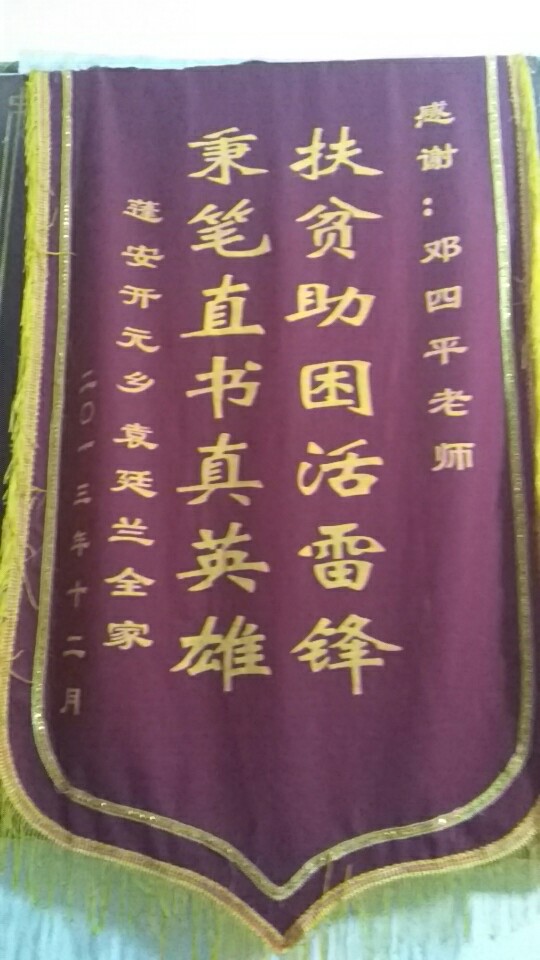 感谢：邓四平老师
扶贫助困活雷锋
秉笔直书真英雄
蓬安开元乡 袁廷兰全家
二〇一三年十二月